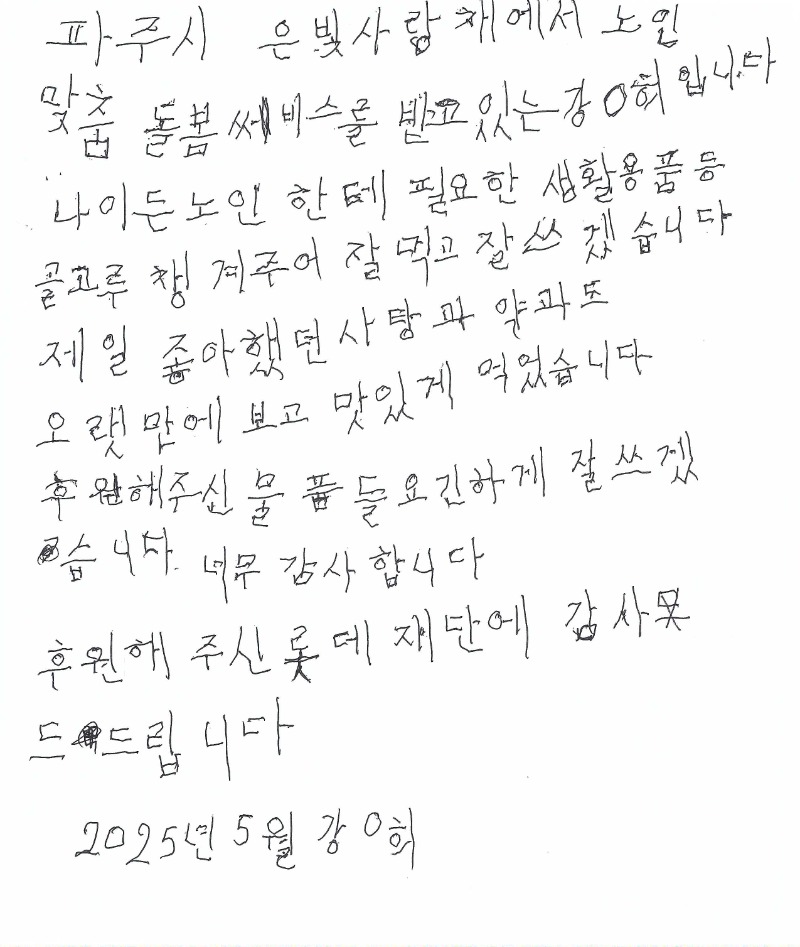 파주시 은빛사랑채에서 노인
맞춤 돌봄 써비스를 받고 있는 강O희 입니다
나이든 노인 한데 필요한 생활용품 등
골고루 챙겨주어 잘 먹고 잘 쓰겠습니다
제일 좋아했던 사탕과 약과또
오랫만에 보고 맛있게 먹었습니다
후원해주신 물품들 요긴하게 잘 쓰겠
습니다. 너무 감사합니다
후원해 주신 롯데 재단에 감사 못
드 드립니다
2025년 5월 강O희